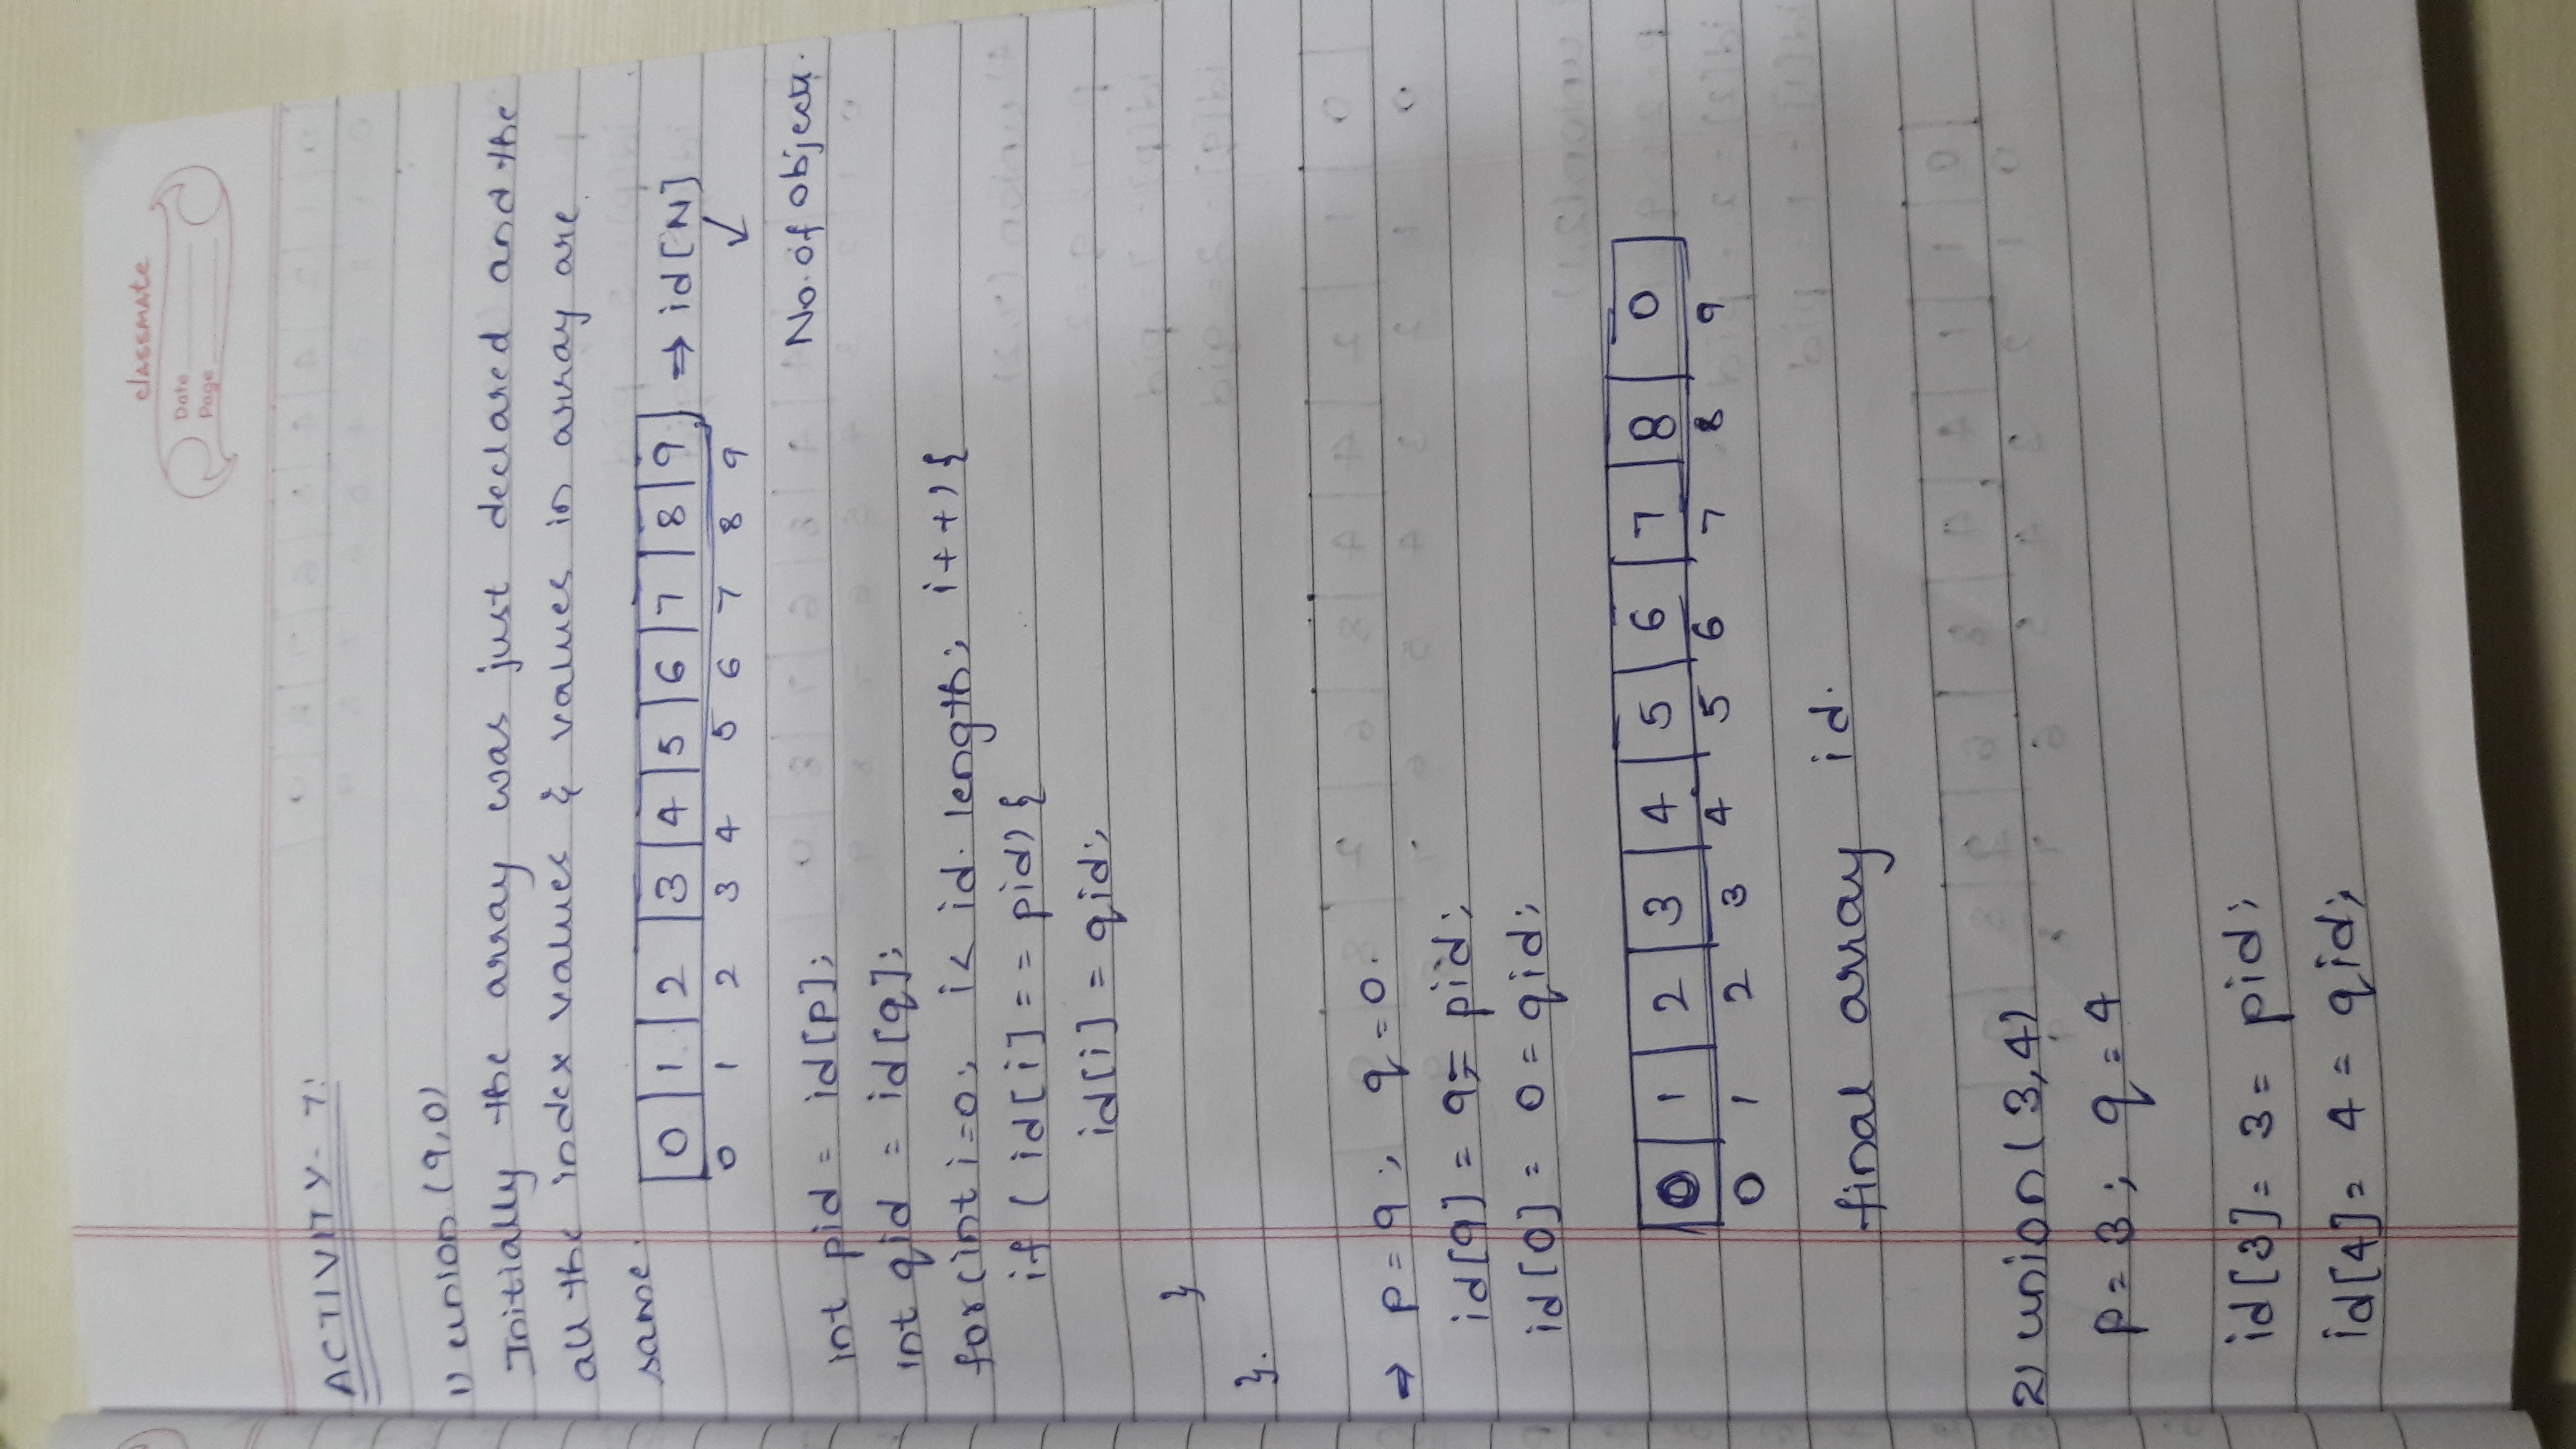 classmate
Date
Page
ACTIVITY- 7:
1) union (9,0)
Initially the array was just declared and the
all the index values & values in array are
same.
0 1 2 3 4 5 6 7 8 9 ⇒ id[N]
0 1 2 3 4 5 6 7 8 9 ↙
No. of objects.
int pid = id[p];
int qid = id[q];
for(int i=0; i< id.length; i++){
if (id[i] == pid) {
id[i] = qid;
}
}.
⇒ p=9; q=0.
id[9] = 9= pid;
id[0] = 0 = qid;
0 1 2 3 4 5 6 7 8 0
0 1 2 3 4 5 6 7 8 9
final array id.
2) union (3,4)
p=3; q=4
id[3]= 3= pid;
id[4]= 4 = qid;